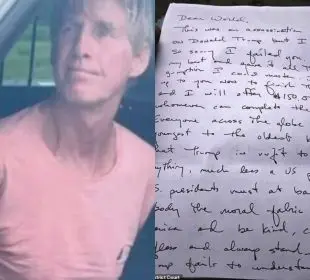 Dear World,
This was an assassination
on Donald Trump but I
so sorry I failed you
my best and gave it all the
gumption I could muster. It
up to you now to finish
and I will offer $150,0
whomever can complete the
Everyone across the globe
youngest to the oldest
that Trump is unfit to
anything, much less a US p
U.S. presidents must at ba
body the moral fabric
and be kind, c
and always stand
fails to understan
District Court